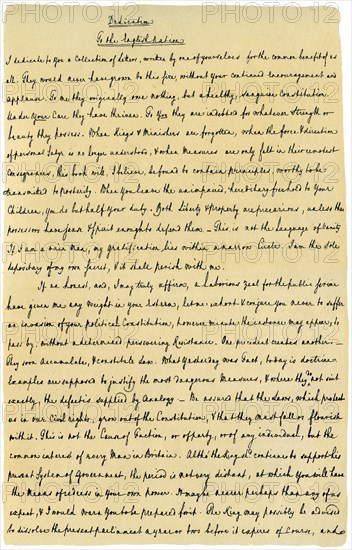 Dedication
To the English Nation
I dedicate to You a Collection of Letters, written by one of yourselves for the common benefit of us
all. They would never have grown to this size, without Your continued encouragement and
applause. To me they originally owe nothing, but a healthy, sanguine Constitution.
Under Your Care they have thriven. To You they are indebted for whatever Strength or
beauty they possess. When Kings & Ministers are forgotten, when the force & direction
of personal Satyr is no longer understood, & when Measures are only felt in their remotest
Consequences, this book will, I believe, be found to contain principles, worthy to be
transmitted to posterity. When You leave the unimpaired, hereditary freehold to Your
Children, You do but half Your duty. Both Liberty & property are precarious, unless the
possessors have sense & Spirit enough to defend them. – This is not the language of Vanity.
If I am a vain Man, my gratification lies within a narrow Circle. I am the Sole
depositary of my own Secret, & it shall perish with me.
If an honest, and, I may truly affirm, a laborious Zeal for the public Service
have given me any Weight in Your Esteem, let me exhort & conjure You never to suffer
an invasion of Your political Constitution, however minute the instance may appear, to
pass by, without a determined, persevering Resistance. One precedent creates another. –
They soon accumulate, & constitute Law. What Yesterday was Fact, today is doctrine.
Examples are supposed to justify the most dangerous Measures, & where they do not suit
exactly, the defect is supplied by Analogy. – Be assured that the Laws, which protect
us in our Civil rights, grow out of the Constitution, & that they must fall or flourish
with it. This is not the Cause of Faction, or of party, or of any individual, but the
common interest of every Man in Britain. Altho the King should continue to support his
present System of Government, the period is not very distant, at which You will have
the Means of redress in Your own power. It may be nearer perhaps than any of us
expect, & I would warn You to be prepared for it. The King may possibly be advised
to dissolve the present parliament a year or two before it expires of Course, and